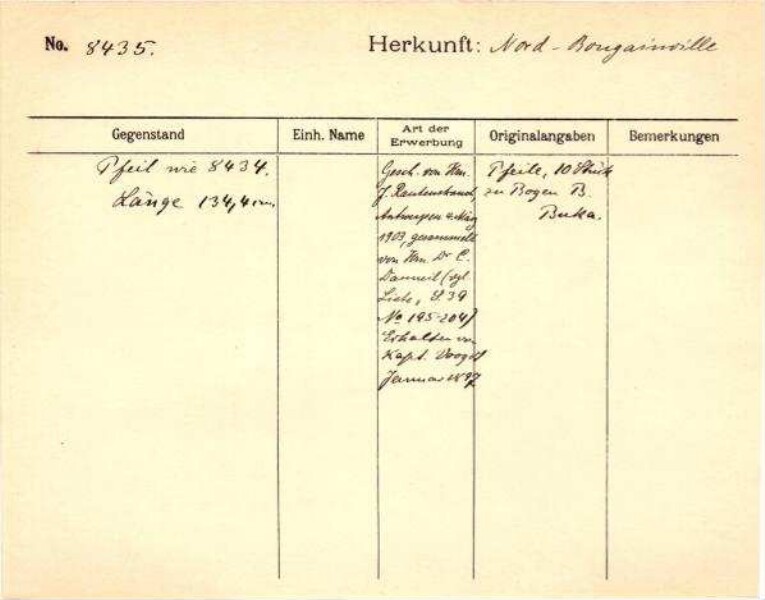 No. 8435. Herkunft: Nord-Bougainville
Gegenstand Einh. Name Art der Erwerbung Originalangaben Bemerkungen
Pfeil wie 8434.
Länge 134,4 cm.
Gesch. von Hrn.
J. Rautenstrauch,
Antwerpen 4. März
1903, gesammelt
von Hrn. Dr C.
Danneil (vgl.
Liste, S. 39
No 195-204)
Erhalten von
Kapt. Voogdt
Januar 1897
Pfeile, 10 Stück
zu Bogen B.
Buka.